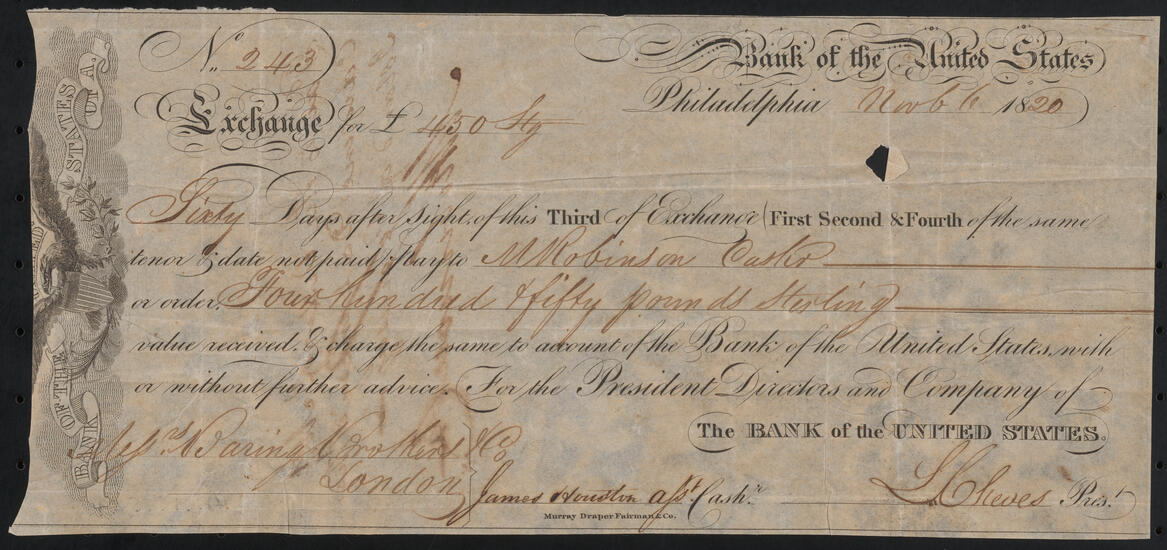 No. 243
Bank of the United States
Philadelphia Novb 6 1820
Exchange for £ 450 Stg
Sixty Days after Sight of this Third of Exchange (First Second & Fourth of the same
tenor & date not paid) Pay to M Robinson Cashr
or order, Four hundred & fifty pounds sterling
value received, & charge the same to account of the Bank of the United States, with
or without further advice. For the President Directors and Company of
The BANK of the UNITED STATES.
Messrs Baring Brothers & Co
London
James Houston asst Cashr.
L Cheves Prest.
Murray Draper Fairman & Co.
BANK OF THE STATES